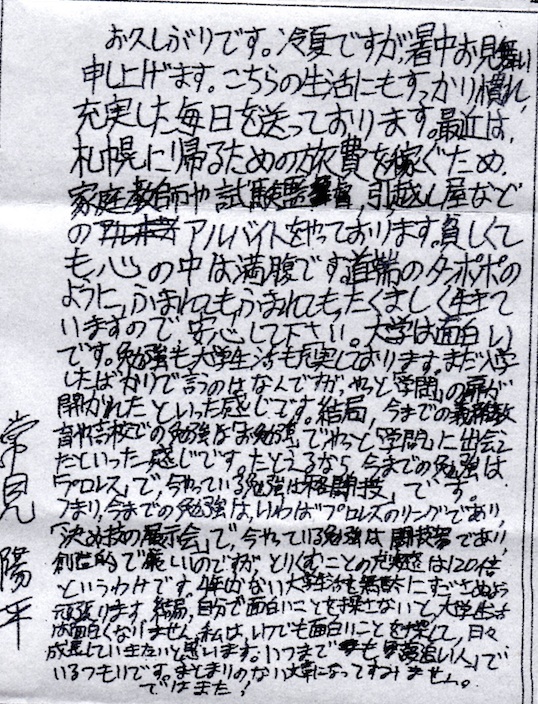 お久しぶりです。冷夏ですが、暑中お見舞い
申し上げます。こちらの生活にもすっかり慣れ、
充実した毎日を送っております。最近は、
札幌に帰るための旅費を稼ぐため、
家庭教師や試験監督、引越し屋など
の アルバイトをやっております。貧しくて
も、心の中は満腹です。道端のタンポポの
ように、ふまれてもふまれても、たくましく生きて
いますので、安心して下さい。大学は面白い
です。勉強も大学生活も充実しております。まだ入学
したばかりで言うのはなんですが、やっと「学問」の扉が
開かれたといった感じです。結局、今までの義務教
育や高校での勉強は「お勉強」でやっと「学問」に出会え
たといった感じです。たとえるなら、今までの勉強は
「プロレス」で、今やっている勉強は「格闘技」です。
つまり、今までの勉強は、いわば"プロレスのリング"であり、
「決め技の展示会」で、今やっている勉強は闘技場であり、
創造的で厳しいのですが、とりくむことの充実感は120倍
というわけです。4年しかない大学生活を無駄にすごさぬよう
頑張ります。結局、自分で面白いことを探さないと、大学生活
は面白くなりません。私は、いつでも面白いことを探して、日々
成長していきたいと思います。いつまでも「夢追い人」で
いるつもりです。まとまりのない文章になってすみません。
ではまた!
常見 陽平